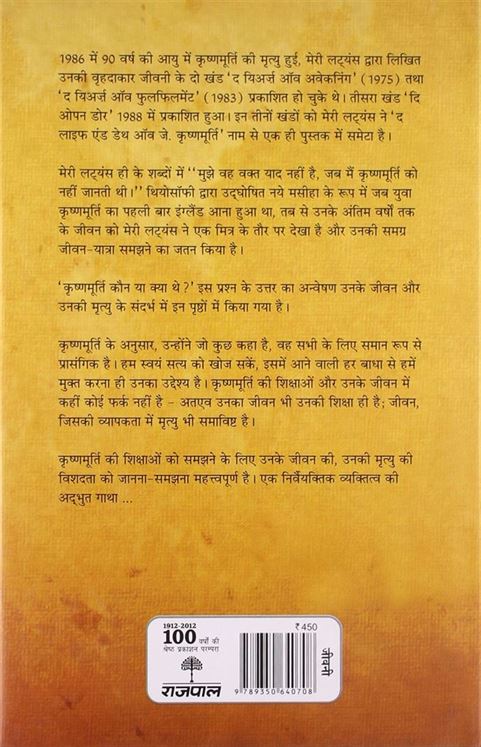 1986 में 90 वर्ष की आयु में कृष्णमूर्ति की मृत्यु हुई, मेरी लट्यंस द्वारा लिखित
उनकी वृहदाकार जीवनी के दो खंड 'द यिअर्ज़ ऑव अवेकनिंग' (1975) तथा
'द यिअर्ज़ ऑव फुलफिलमेंट' (1983) प्रकाशित हो चुके थे। तीसरा खंड 'दि
ओपन डोर' 1988 में प्रकाशित हुआ। इन तीनों खंडों को मेरी लट्यंस ने 'द
लाइफ एंड डेथ ऑव जे. कृष्णमूर्ति' नाम से एक ही पुस्तक में समेटा है।
मेरी लट्यंस ही के शब्दों में "मुझे वह वक्त याद नहीं है, जब मैं कृष्णमूर्ति को
नहीं जानती थी।" थियोसॉफी द्वारा उद्घोषित नये मसीहा के रूप में जब युवा
कृष्णमूर्ति का पहली बार इंग्लैंड आना हुआ था, तब से उनके अंतिम वर्षों तक
के जीवन को मेरी लट्यंस ने एक मित्र के तौर पर देखा है और उनकी समग्र
जीवन-यात्रा समझने का जतन किया है।
'कृष्णमूर्ति कौन या क्या थे?' इस प्रश्न के उत्तर का अन्वेषण उनके जीवन और
उनकी मृत्यु के संदर्भ में इन पृष्ठों में किया गया है।
कृष्णमूर्ति के अनुसार, उन्होंने जो कुछ कहा है, वह सभी के लिए समान रूप से
प्रासंगिक है। हम स्वयं सत्य को खोज सकें, इसमें आने वाली हर बाधा से हमें
मुक्त करना ही उनका उद्देश्य है। कृष्णमूर्ति की शिक्षाओं और उनके जीवन में
कहीं कोई फर्क नहीं है – अतएव उनका जीवन भी उनकी शिक्षा ही है; जीवन,
जिसकी व्यापकता में मृत्यु भी समाविष्ट है।
कृष्णमूर्ति की शिक्षाओं को समझने के लिए उनके जीवन की, उनकी मृत्यु की
विशदता को जानना-समझना महत्त्वपूर्ण है। एक निर्वैयक्तिक व्यक्तित्व की
अद्भुत गाथा ...
1912-2012
100 वर्षों की
श्रेष्ठ प्रकाशन परम्परा
राजपाल
₹ 450
9 789350 640708
जीवनी